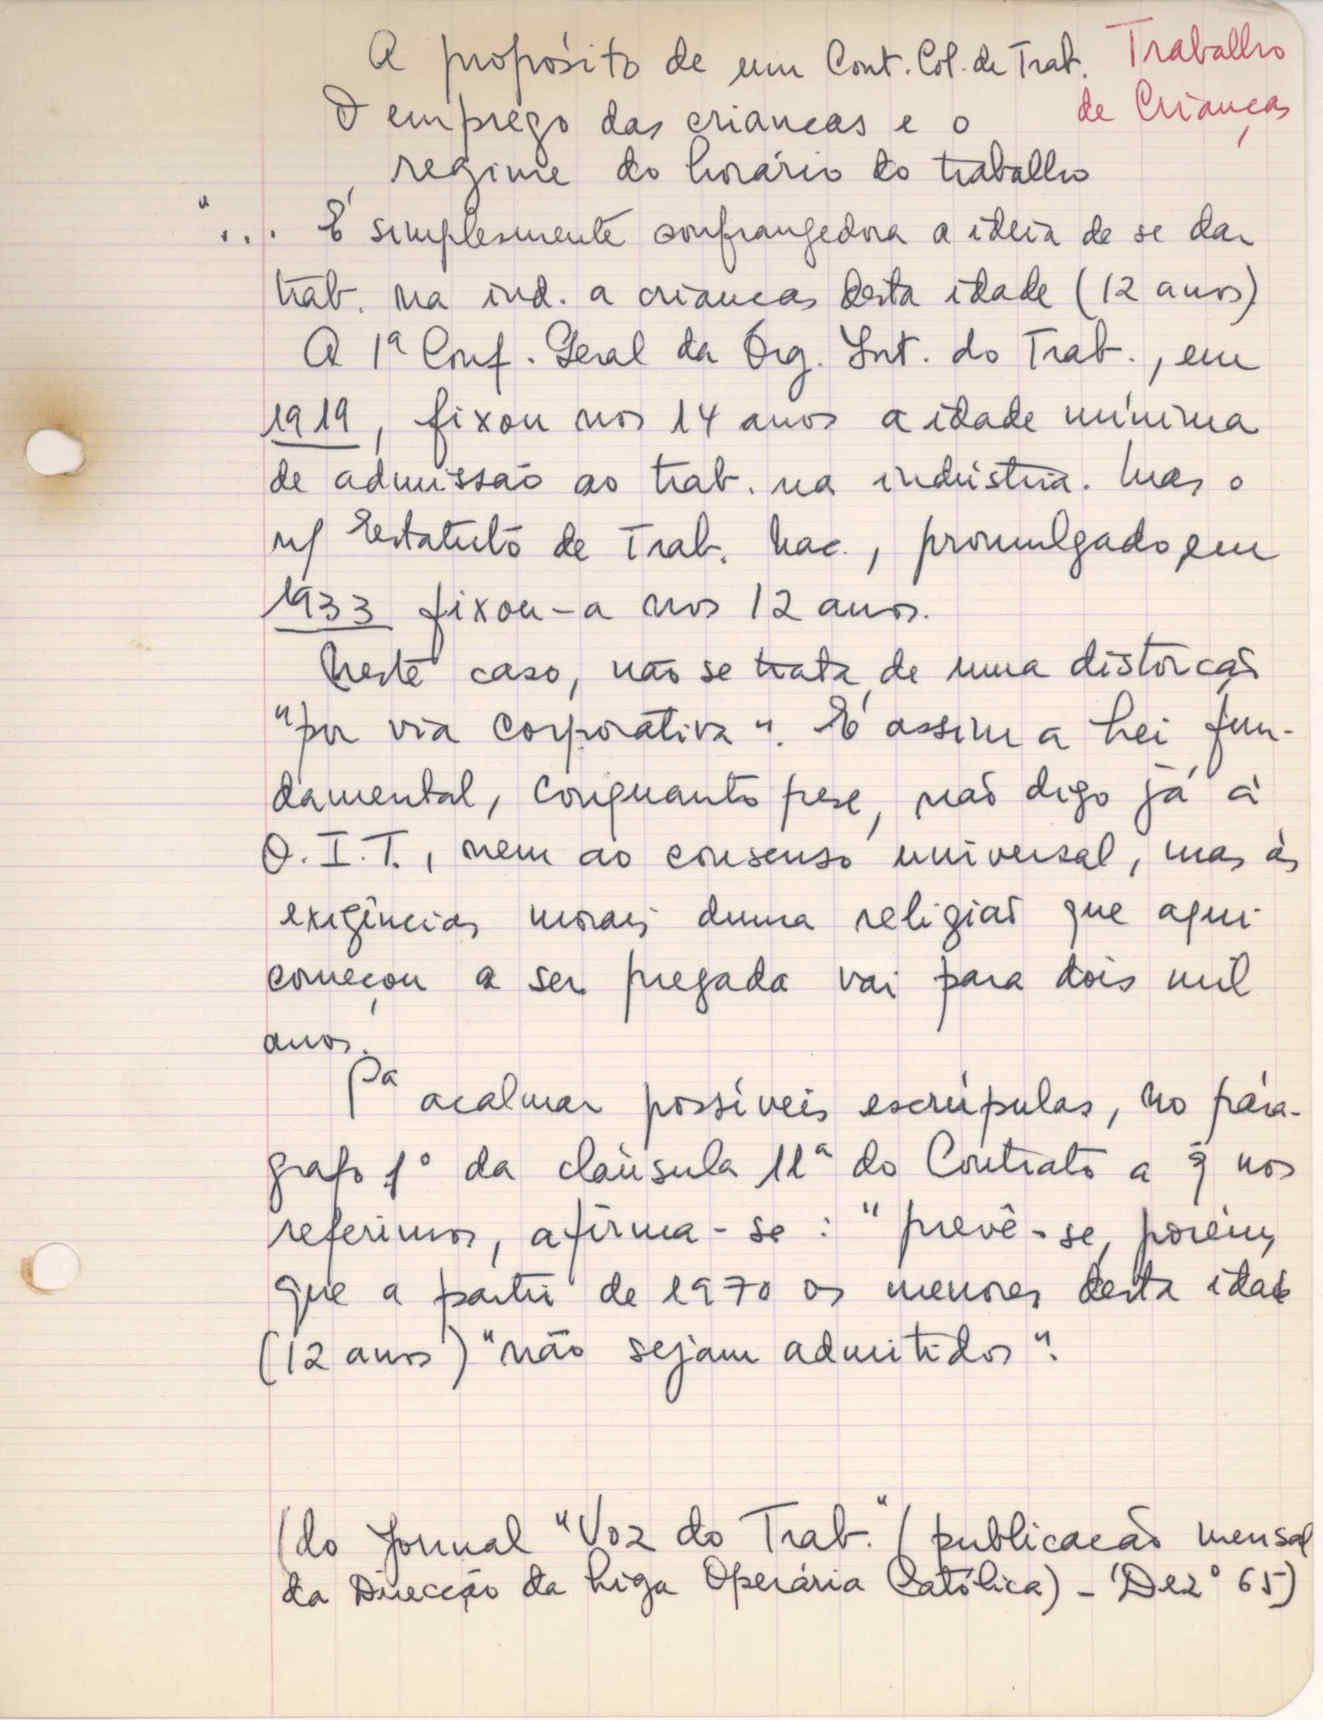 A propósito de um Cont. Col. de Trab.
Trabalho
de Crianças
O emprego das crianças e o
regime do horário do trabalho
"... É simplesmente confrangedora a ideia de se dar
trab. na ind. a crianças desta idade (12 anos)
A 1ª Conf. Geral da Org. Int. do Trab., em
1919, fixou nos 14 anos a idade mínima
de admissão ao trab. na indústria. Mas o
n/ Estatuto de Trab. Nac., promulgado em
1933 fixou-a nos 12 anos.
Neste caso, não se trata de uma distorção
"por via corporativa". É assim a Lei fun-
damental, conquanto pese, não digo já à
O.I.T., nem ao consenso universal, mas às
exigências morais duma religião que aqui
começou a ser pregada vai para dois mil
anos.
Pª acalmar possíveis escrúpulas, no pará-
grafo 1º da claúsula 11ª do Contrato a q̃ nos
referimos, afirma-se: "prevê-se, porém,
que a partir de 1970 os menores desta idade
(12 anos) "não sejam admitidos".
(do Jornal "Voz do Trab." (publicação mensal
da Direcção da Liga Operária Católica) - Dezº 65)